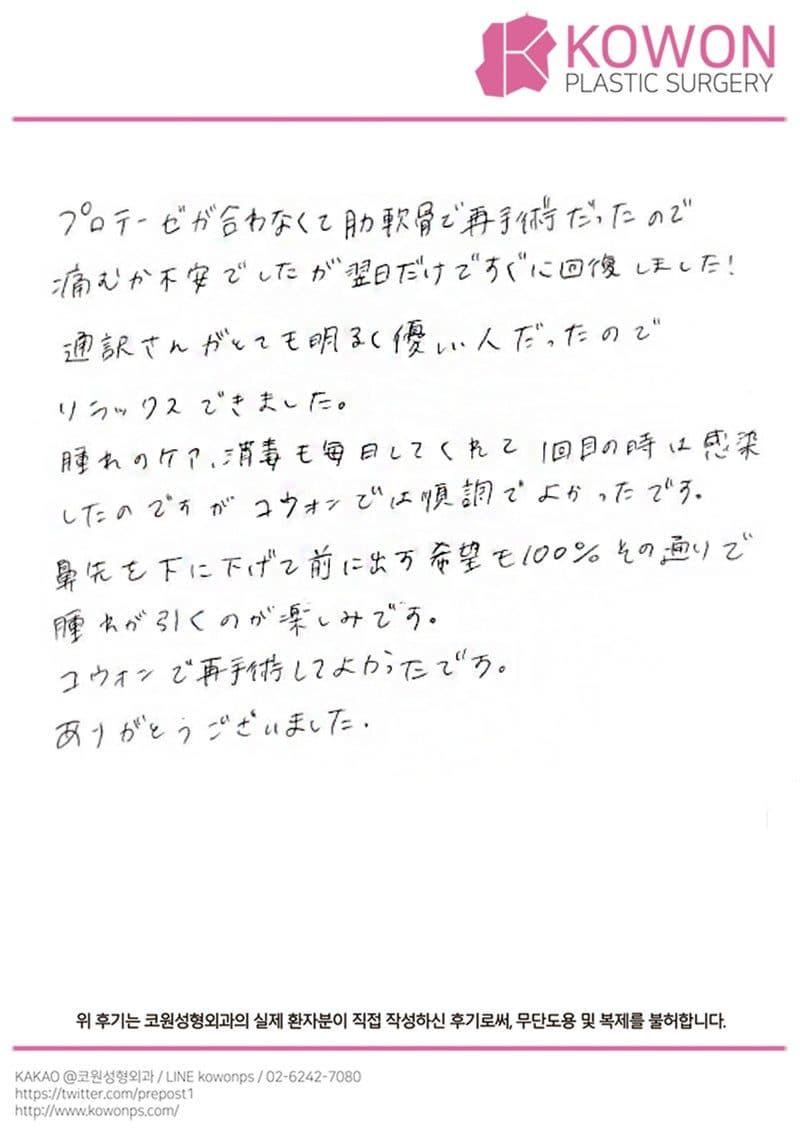 KOWON
PLASTIC SURGERY
プロテーゼが合わなくて肋軟骨で再手術だったので
痛むか不安でしたが翌日だけですぐに回復しました!
通訳さんがとても明るく優しい人だったので
リラックスできました。
腫れのケア、消毒も毎日してくれて 1回目の時は感染
したのですが コウォンでは順調でよかったです。
鼻先を下に下げて前に出す希望も100%その通りで
腫れが引くのが楽しみです。
コウォンで再手術してよかったです。
ありがとうございました.
위 후기는 코원성형외과의 실제 환자분이 직접 작성하신 후기로써, 무단도용 및 복제를 불허합니다.
KAKAO @코원성형외과 / LINE kowonps / 02-6242-7080
https://twitter.com/prepost1
http://www.kowonps.com/